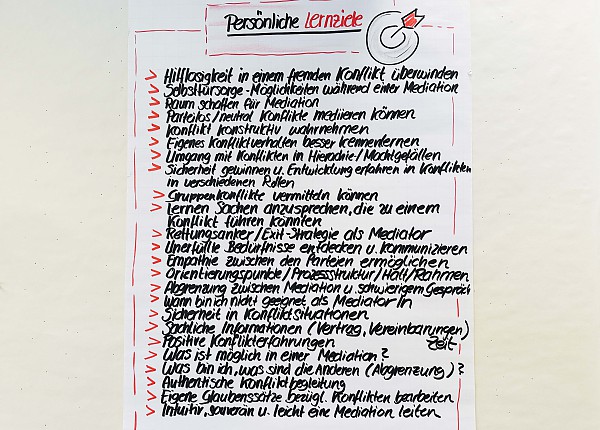 Persönliche Lernziele
Hilflosigkeit in einem fremden Konflikt überwinden
Selbstfürsorge-Möglichkeiten während einer Mediation
Raum schaffen für Mediation
Parteilos/neutral Konflikte mediieren können
Konflikt konstruktiv wahrnehmen
Eigenes Konfliktverhalten besser kennenlernen
Umgang mit Konflikten in Hierachie/Machtgefällen
Sicherheit gewinnen u. Entwicklung erfahren in Konflikten
in verschiedenen Rollen
Gruppenkonflikte vermitteln können
Lernen Sachen anzusprechen, die zu einem
Konflikt führen könnten
Rettungsanker/Exit-Strategie als Mediator
Unerfüllte Bedürfnisse entdecken u. kommunizieren
Empathie zwischen den Parteien ermöglichen
Orientierungspunkte/Prozessstruktur/Halt/Rahmen
Abgrenzung zwischen Mediation u. schwierigem Gespräch
Wann bin ich nicht geeignet als Mediator in
Sicherheit in Konfliktsituationen
Sachliche Informationen (Vertrag, Vereinbarungen)
Positive Konflikterfahrungen Zeit
Was ist möglich in einer Mediation?
Was bin ich, was sind die Anderen (Abgrenzung)?
Authentische Konfliktbegleitung
Eigene Glaubenssätze bezügl. Konflikten bearbeiten
Intuitiv, souverän u. leicht eine Mediation leiten